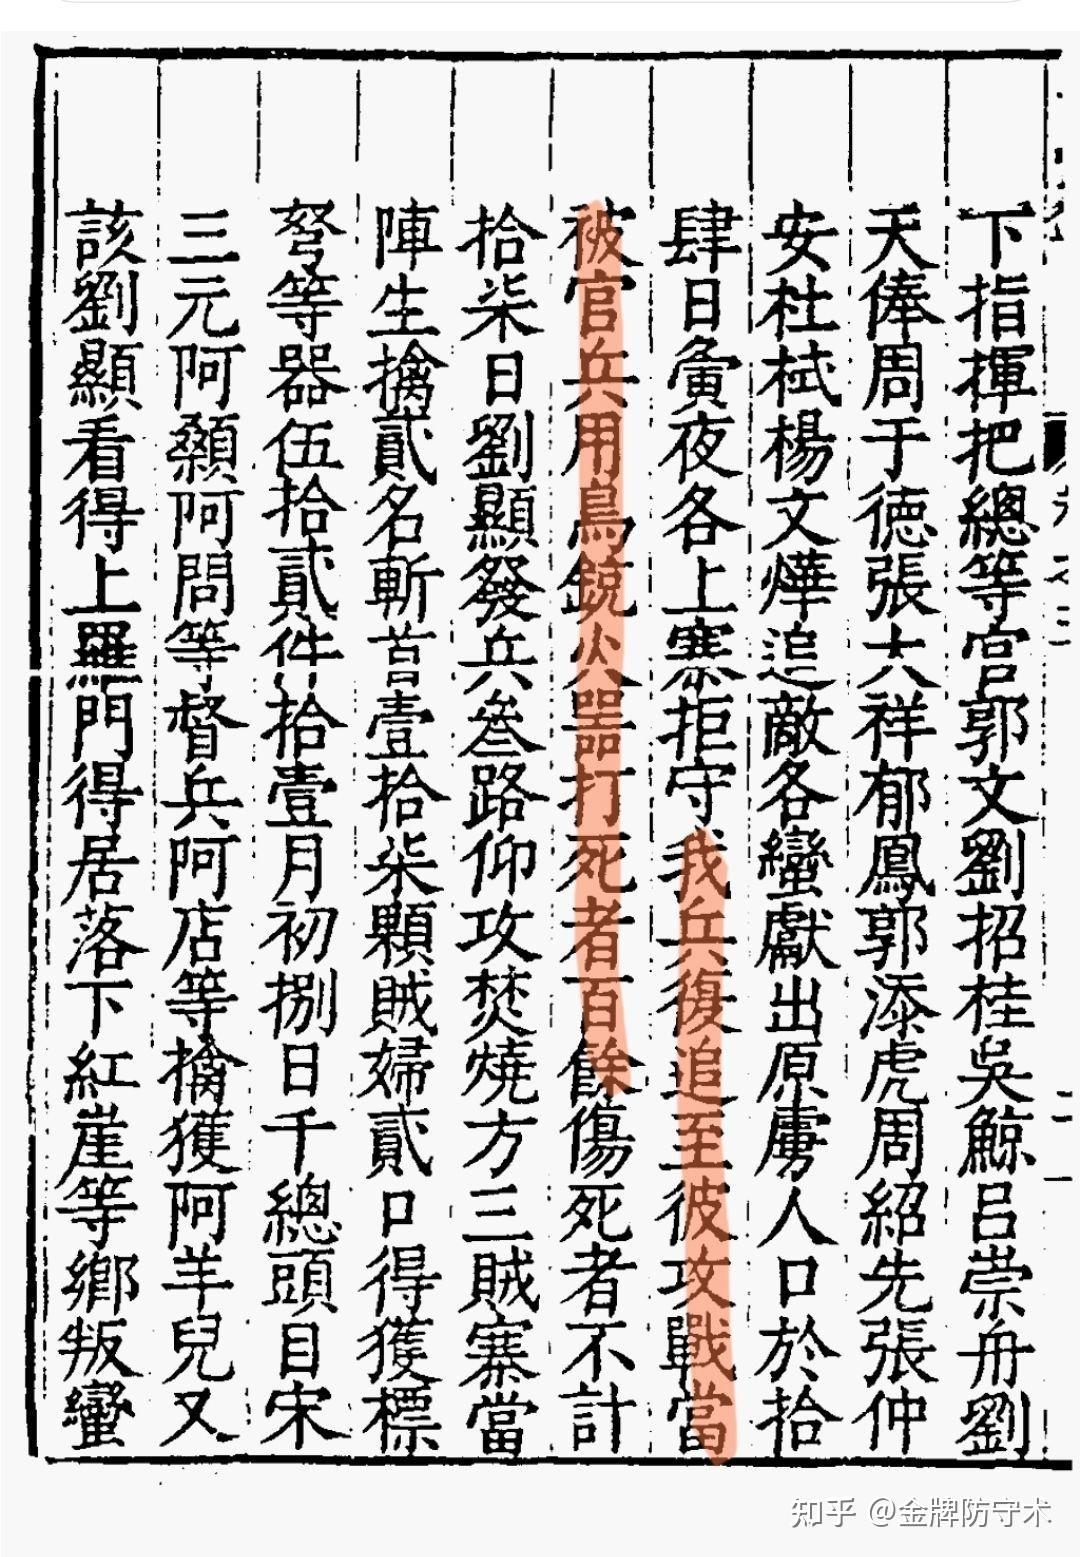 下指揮把總等官郭文劉招桂吳鯨呂崇舟劉
天俸周于德張大祥郁鳳郭添虎周紹先張仲
安杜栻楊文燁追敵各蠻獻出原虜人口於拾
肆日夤夜各上寨拒守我兵復追至彼攻戰當
被官兵用鳥銃火器打死者百餘傷死者不計
拾柒日劉顯發兵叄路仰攻焚燒方三賊寨當
陣生擒貳名斬首壹拾柒顆賊婦貳口得獲標
弩等器伍拾貳件拾壹月初捌日千總頭目宋
三元阿顙阿問等督兵阿店等擒獲阿羊兒又
該劉顯看得上羅門得居落下紅崖等鄉叛蠻
知乎 @金牌防守术